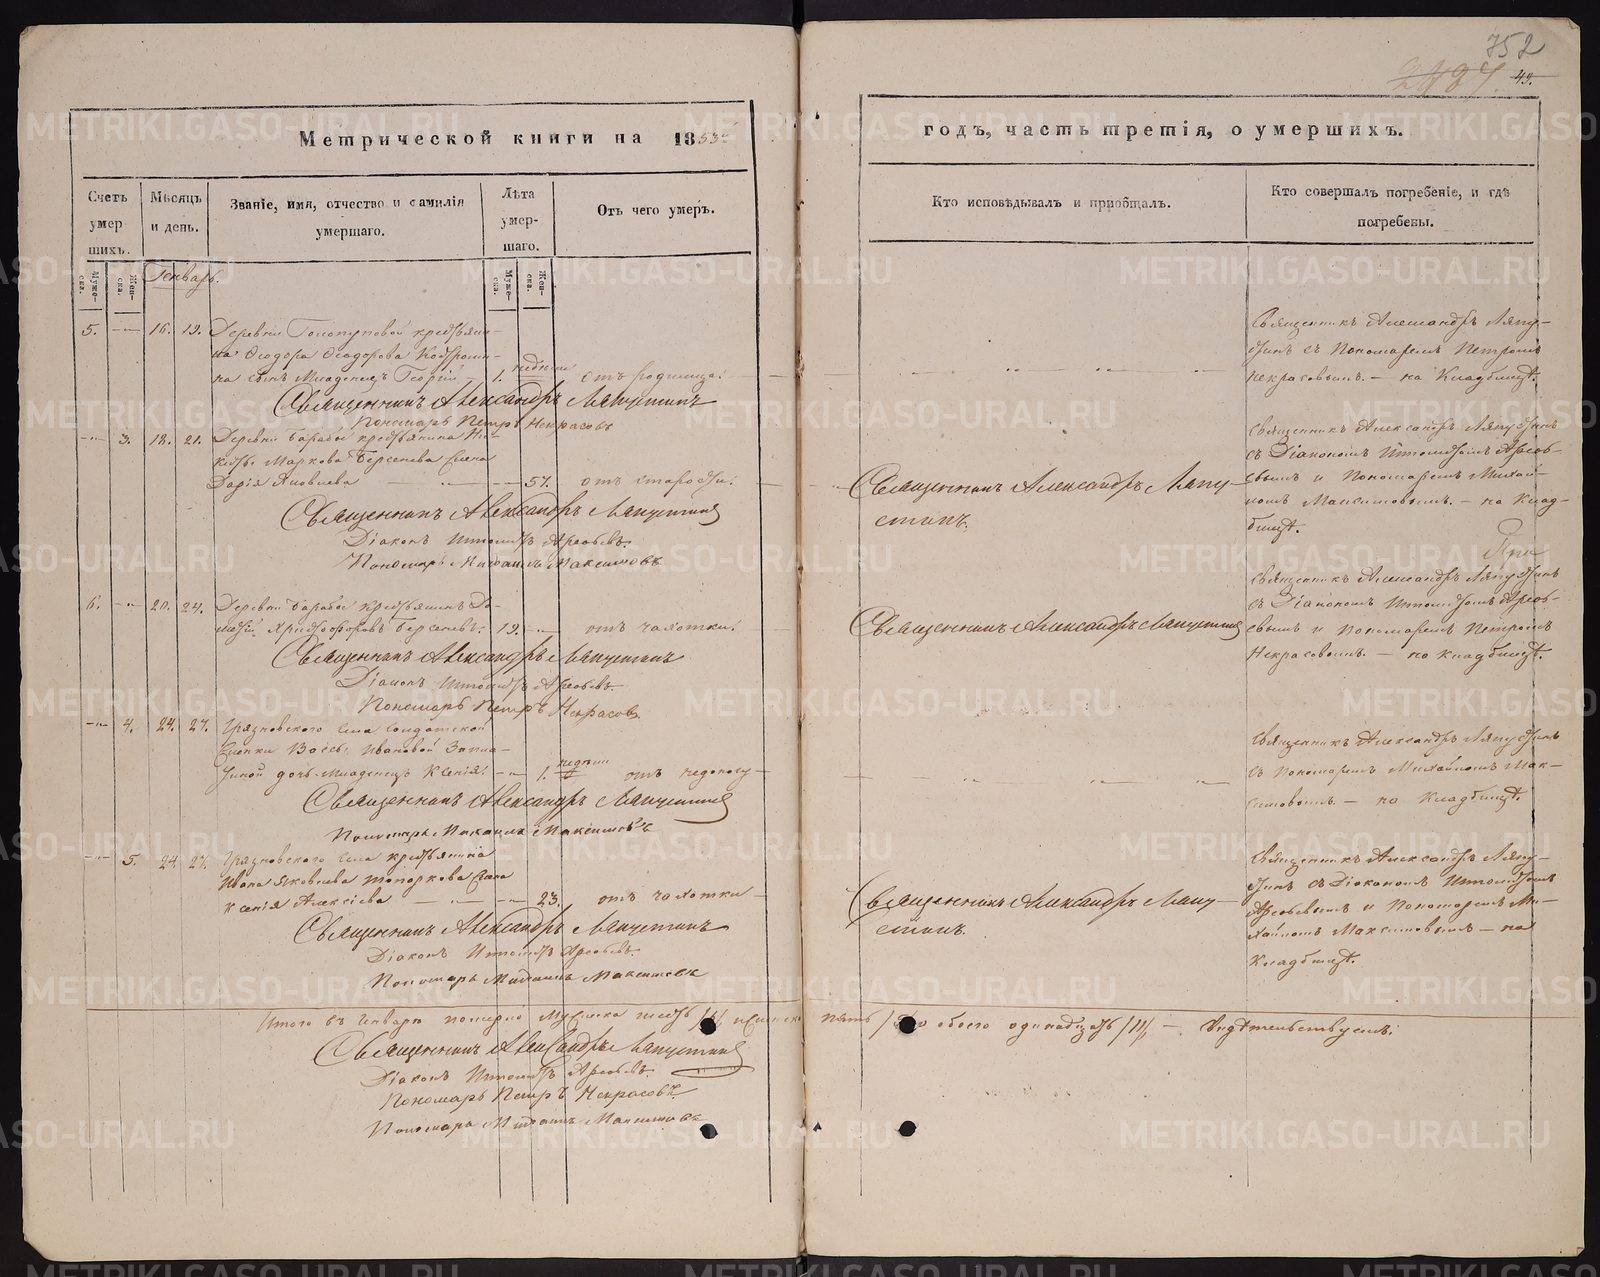 752
49.
Метрической книги на 1853
годъ, часть третія, о умершихъ.
Счетъ умер шихъ.
Мѣсяцъ и день.
Званіе, имя, отчество и фамилія умершаго.
Лѣта умер- шаго.
Отъ чего умеръ.
Кто исповѣдывалъ и пріобщалъ.
Кто совершалъ погребеніе, и гдѣ погребены.
Муже- ска.
Жен- ска.
Муже- ска.
Жен- ска.
Генварь.
5. 16. 19. Деревни крестьяни-
на Ѳеодора Ѳеодорова
на сынъ Младенецъ Георгій 1. недѣли отъ родимца.
Священникъ Александръ Ляпустинъ
Пономарь Петръ Некрасовъ
Священникъ Александръ Ляпу-
стинъ съ Пономаремъ Петромъ
Некрасовымъ. — на Кладбищѣ.
3. 18. 21. Деревни Барабы крестьянина
Маркова Берсенева Жена
Дарія Яковлева 57. отъ старости.
Священникъ Александръ Ляпустинъ
Діаконъ
Пономарь Михаилъ Максимовъ
Священникъ Александръ Ляпу-
стинъ.
Священникъ Александръ Ляпустинъ
съ Діакономъ
и Пономаремъ Михаи-
ломъ Максимовымъ. — на Клад-
бищѣ.
При
6. 20. 24. Деревни Барабы крестьянинъ
Христофоровъ Берсеневъ. 19. отъ чахотки.
Священникъ Александръ Ляпустинъ
Діаконъ
Пономарь Петръ Некрасовъ.
Священникъ Александръ Ляпустинъ
Священникъ Александръ Ляпустинъ
съ Діакономъ
и Пономаремъ Петромъ
Некрасовымъ. — на кладбищѣ.
4. 24. 27. Грязновского села солдатской
Женки Вассы Ивановой
дочь Младенецъ Ксенія. 1. недѣли отъ
Священникъ Александръ Ляпустинъ
Пономарь Михаилъ Максимовъ
Священникъ Александръ Ляпустинъ
съ Пономаремъ Михаиломъ Мак-
симовымъ. — на Кладбищѣ.
5. 24. 27. Грязновского села крестьянина
Ивана Яковлева Топоркова Жена
Ксенія Алексіева 23. отъ чахотки
Священникъ Александръ Ляпустинъ
Діаконъ
Пономарь Михаилъ Максимовъ
Священникъ Александръ Ляпу-
стинъ.
Священникъ Александръ Ляпу-
стинъ съ Діакономъ
и Пономаремъ Ми-
хаиломъ Максимовымъ — на
Кладбищѣ.
Итого въ Январѣ померло Мужеска шесть /6/ женска пять /5/ обоего одинадцать /11/ — Свидѣтельствуемъ:
Священникъ Александръ Ляпустинъ
Діаконъ
Пономарь Петръ Некрасовъ.
Пономарь Михаилъ Максимовъ
METRIKI.GASO-URAL.RU